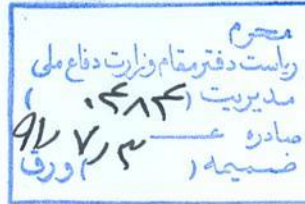 محرم
ریاست دفتر مقام وزارت دفاع ملی
مدیریت (۰۴۸۴)
صادره ۹۱/۷/۳
ضمیمه ( ) ورق